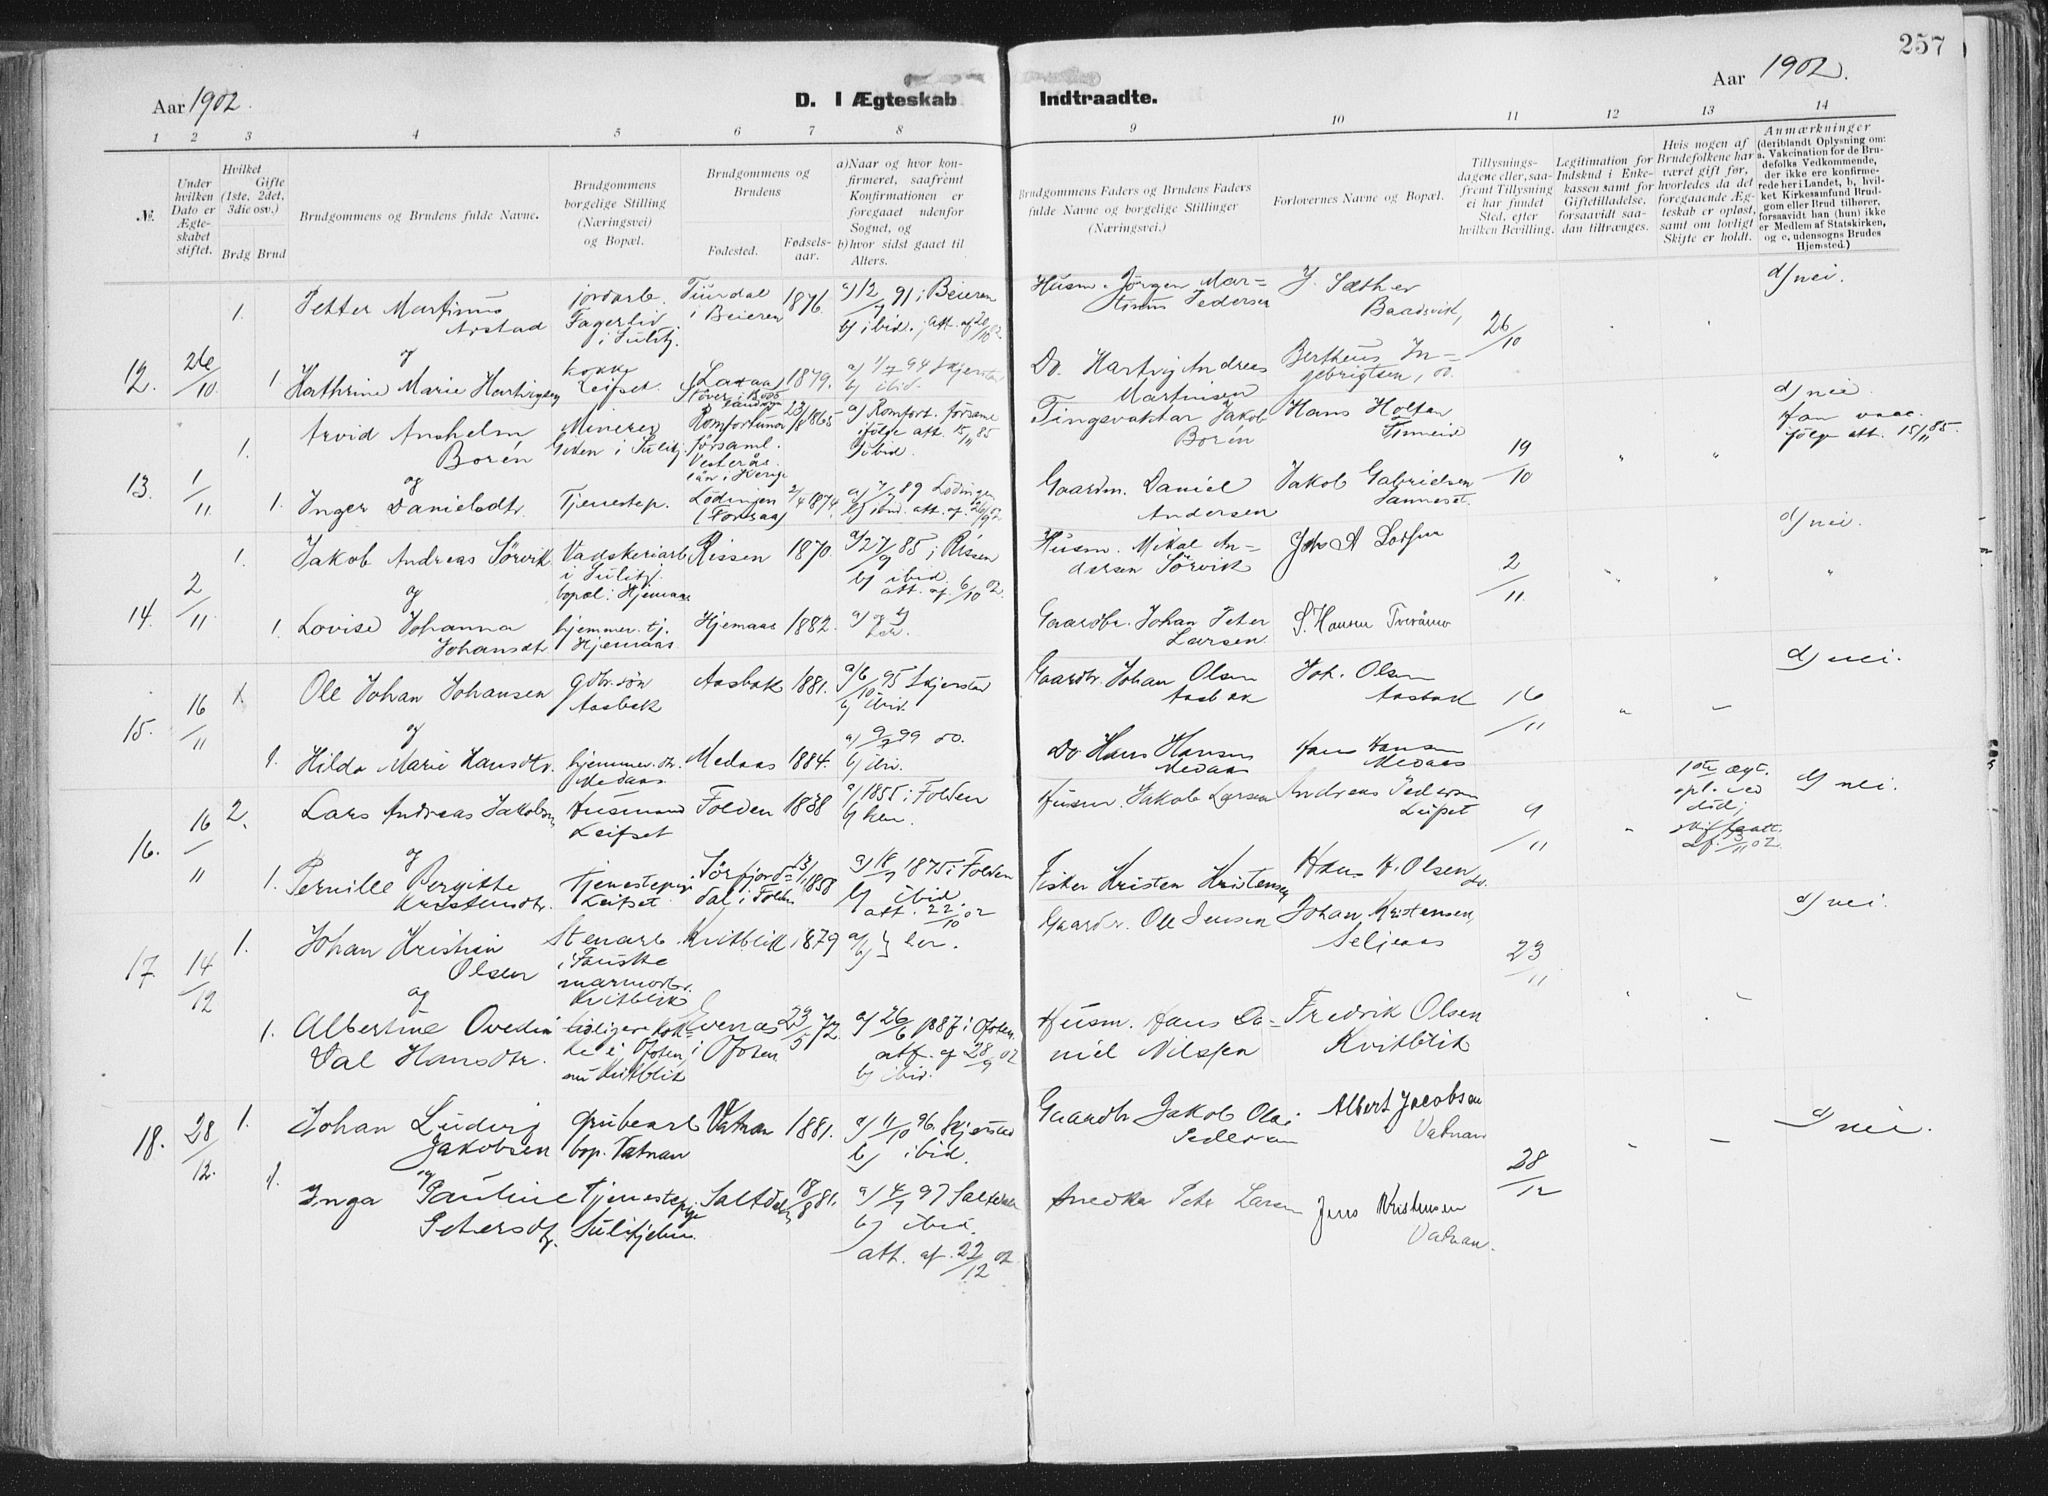 257
Aar 1902.
D. I Ægteskab Indtraadte.
Aar 1902.
1 2 3 4 5 6 7 8 9 10 11 12 13 14
№.
Under hvilken Dato er Ægteskabet stiftet.
Hvilket Gifte (1ste, 2det, 3die osv.)
Brdg Brud
Brudgommens og Brudens fulde Navne.
Brudgommens borgelige Stilling (Næringsvei) og Bopæl.
Brudgommens og Brudens
Fødested.
Fødselsaar.
a) Naar og hvor konfirmeret, saafremt Konfirmationen er foregaaet udenfor Sognet, og
b) hvor sidst gaaet til Alters.
Brudgommens Faders og Brudens Faders fulde Navne og borgelige Stillinger (Næringsvei.)
Forlovernes Navne og Bopæl.
Tillysningsdagene eller, saafremt Tillysning ei har fundet Sted, efter hvilken Bevilling.
Legitimation for Indskud i Enkekassen samt for Giftetilladelse, forsaavidt saadan tiltrænges.
Hvis nogen af Brudefolkene har været gift før, hvorledes da det foregaaende Ægteskab er opløst, samt om lovligt Skifte er holdt.
Anmærkninger (deriblandt Oplysning om: a. Vakcination for de Brudefolks Vedkommende, der ikke ere konfirmerede her i Landet, b, hvilket Kirkesamfund Brudgom eller Brud tilhører, forsaavidt han (hun) ikke er Medlem af Statskirken, og c, udensogns Brudes Hjemsted.)
12. 26/10
1. Petter Martinus Arstad
jordarb. Fagerliv i Sulitj.
i Beieren 1876.
a) 12/7 91 i Beieren b) ibid., att. af 20/10 02.
Husm. Jörgen Martinus Pedersen
J. Sæther Baadsvik,
26/10
d) nei.
og
1 Kathrine Marie Hartvigsen
kokke Leifset.
1879.
a) 1/7 94 Skjerstad b) ibid.
Do. Hartvig Andreas Martinsen
Bertheus Ingebrigtsen, do.
13. 1/11
1. Arvid Anshelm Borén
Minerer Geden i Sulitj.
Romfortuna församl. Vesterås län i Sverige
23/8 1865
a) Romfort. församl. ifölge att. 15/11 85 b) ibid.
Tingsvaktar Jakob Borén
Hans Holten Finneid
19/10
d) nei
ifölge att. 15/11 85.
og
1. Inger Danielsdtr.
Tjenestep.
Lödingen (Forsaa)
2/4 1874.
a) 7/7 89 Lödingen b) ibid. att. af. 26/9 02
Gaardm. Daniel Andersen
Jakob Gabrielsen
14. 2/11
1. Jakob Andreas Sörvik
Vadskeriarb. i Sulitj. bopæl: Hjemaas
Rissen 1870.
a) 27/9 85 i Rissen b) ibid. att. af. 6/10 02.
Husm. Mikal Andersen Sörvik
2/11.
d) nei.
og
1. Lovise Johanna Johansdtr.
hjemmev. tj. Hjemaas.
Hjemaas 1882.
a) og b) her.
Gaardbr. Johan Peter Larsen.
S. Hansen Tveråmo
15. 16/11
1. Ole Johan Johansen
gdbr. sön Aasbak
Aasbak 1881.
a) 6/10 95 Skjerstad b) ibid.
Gaardbr. Johan Olsen Aasbak
Joh. Olsen Aasbak
16/11
d) nei.
og
1. Hilda Marie Hansdtr.
hjemmev. dtr. Medaas
Medaas 1884.
a) 9/7 99 do. b) ibi.
Do Hans Hansen Medaas
Hans Hansen Medaas
16. 16/11
2. Lars Andreas Jakobsen
Husmand Leifset
Folden 1838
a) 1855 i Folden b) her.
Husm. Jakob Larsen
Andreas Pedersen Leifset
9/11
1ste ægt. opl. ved död; skifteatt. af. 13/11 02.
d) nei.
og
1. Pernille Bergitte Kristensdtr.
Tjenestepige Leifset.
Sörfjorddal i Folden
13/1 1858
a) 18/7 1875 i Folden b) ibid. att. 22/10 02
Fisker Kristen Kristensen
Hans H. Olsen do.
17. 14/12
1. Johan Kristian Olsen
Stenarb. i Fauske marmorbr. Kvitblik
Kvitblik 1879
a) b) } her.
Gaardbr. Ole Jensen
Johan Kristensen, Seljeaas
23/11
d) nei.
og
1. Albertine Ovedia Dal Hansdtr.
tidligere kokke i Ofoten, nu Kvitblik
Evenes i Ofoten
23/5 72.
a) 26/6 1887 i Ofoten. att. af 28/9 02 b) ibid.
Husm. Hans Daniel Nilssen
Fredrik Olsen Kvitblik
18. 28/12.
1. Johan Ludvig Jakobsen
grubearb. bop. Vatnan
Vatnan 1881.
a) 11/10 96. Skjerstad b) ibid.
Gaardbr Jakob Olai Pedersen
Albert Jacobsen Vatnan
28/12
d) nei.
og
1. Inga Pauline Petersdtr.
Tjenestepige Sulitjelma.
Saltdalen 18/8 81.
a) 4/7 97 Saltdalen b) ibid att. af. 22/12 02.
Snedker Peter Larsen
Jens Kristensen Vatnan.